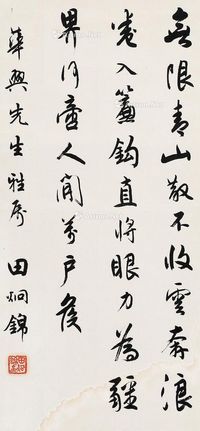 無限青山散不收雲奔浪
卷入簾鉤直將眼力為疆
界何啻人間萬戶侯
華興先生雅屬 田炯錦